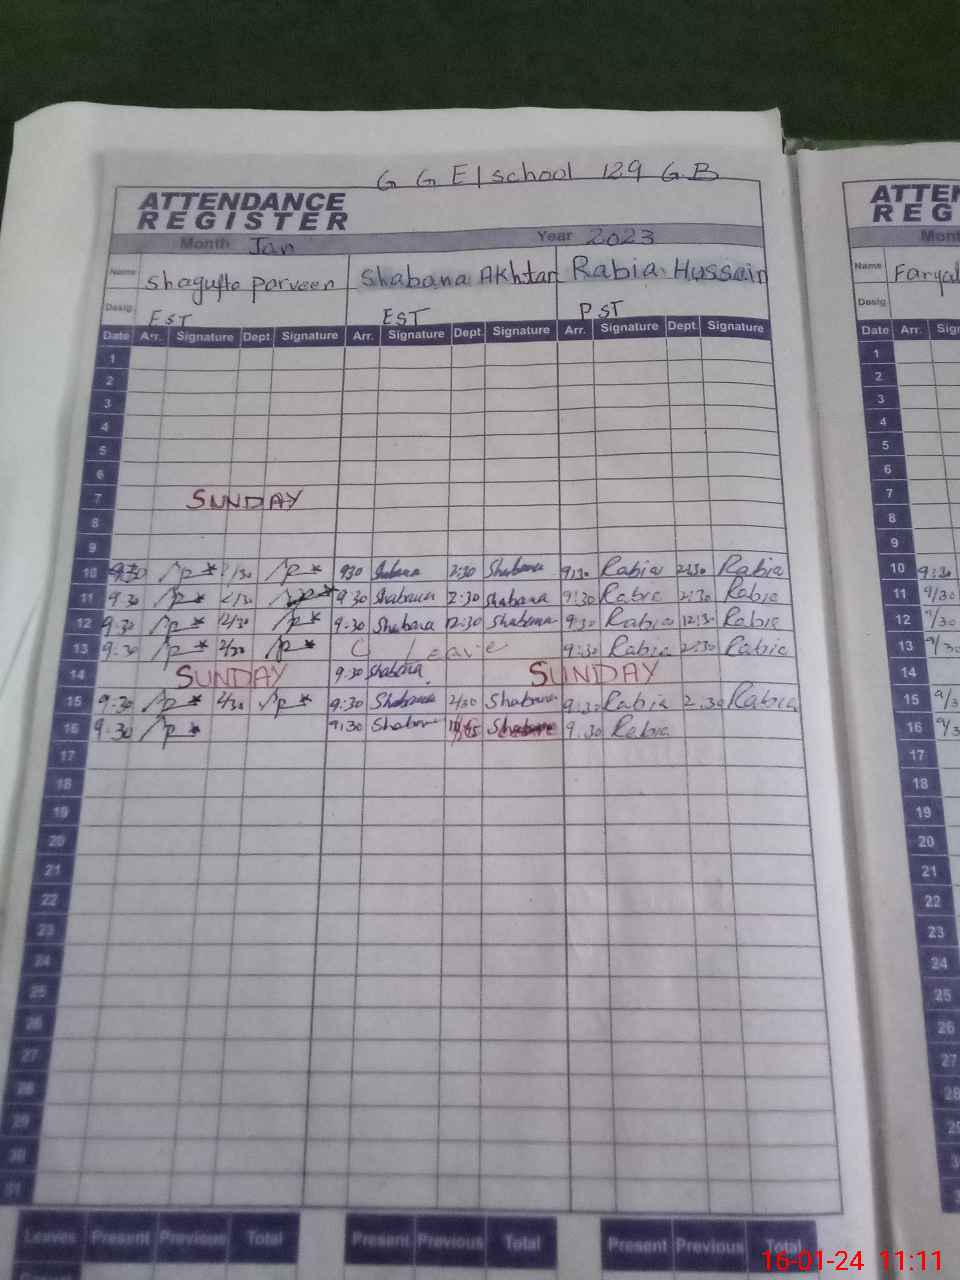 G G E/school 129 G.B
ATTENDANCE REGISTER
Month Jan Year 2023
Name Shagufta Parveen Shabana Akhtar Rabia Hussain
Desig EST EST PST
Date Arr. Signature Dept Signature Arr. Signature Dept. Signature Arr. Signature Dept. Signature
1
2
3
4
5
6
7 SUNDAY
8
9
10 9:30 2/30 930 Shabana 2:30 Shabana 9:30 Rabia 2:30 Rabia
11 9.30 2/30 9:30 Shabana 2:30 Shabana 9:30 Rabia 2:30 Rabia
12 9:30 12/30 9:30 Shabana 12:30 Shabana 9:30 Rabia 12:30 Rabia
13 9:30 2/30 C Leave 9:30 Rabia 2:30 Rabia
14 SUNDAY 9:30 Shabana SUNDAY
15 9:30 2/30 9:30 Shabana 2/30 Shabana 9:30 Rabia 2.30 Rabia
16 9:30 9:30 Shabana Shabana 9.30 Rabia
17
18
19
20
21
22
23
24
25
26
27
28
29
30
31
Leaves Present Previous Total Present Previous Total Present Previous Total
ATTEN
REG
Mont
Name Faryal
Desig
Date Arr. Sig
1
2
3
4
5
6
7
8
9
10 9:30
11 9/30
12 9/30
13 9/30
14
15 9/3
16 9/3
17
18
19
20
21
22
23
24
25
26
27
28
16-01-24 11:11